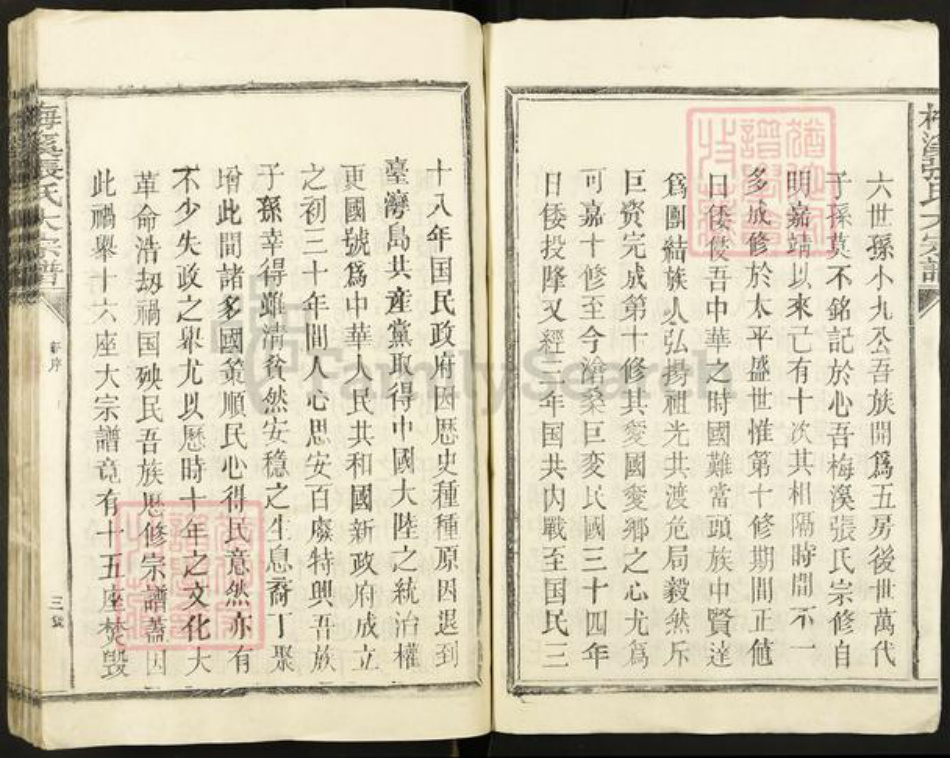 梅溪張氏大宗譜
六世孫小九公吾族開爲五房後世萬代
子孫莫不銘記於心吾梅溪張氏宗修自
明嘉靖以來已有十次其相隔時間不一
多成修於太平盛世惟第十修期間正值
日倭侵吾中華之時國難當頭族中賢達
爲團結族人弘揚祖光共渡危局毅然斥
巨資完成第十修其愛國愛鄉之心尤爲
可嘉十修至今滄桑巨変民國三十四年
日倭投降又經三年国共内戰至国民三
十八年国民政府因歷史種種原因退到
臺灣島共産黨取得中國大陸之統治權
更國號爲中華人民共和國新政府成立
之初三十年間人心思安百廢特興吾族
子孫幸得雖清貧然安穏之生息裔丁聚
增此間諸多國策順民心得民意然亦有
不少失政之舉尤以歷時十年之文化大
革命浩劫禍国殃民吾族歷修宗譜蓋因
此禍舉十六座大宗譜竟有十五座焚毀
梅溪張氏大宗譜
新序
三
FamilySearch